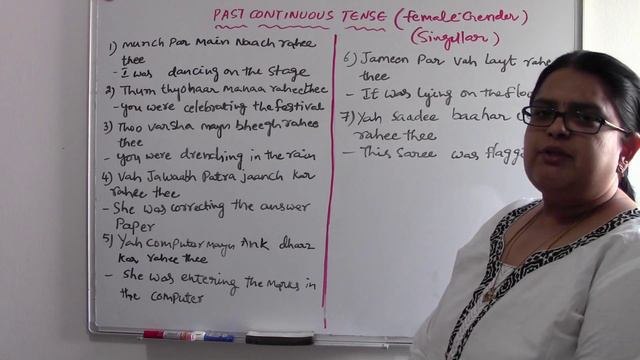 PAST CONTINUOUS TENSE (female Gender)
(Singular)
1) munch Par Main Naach rahee
thee
- I was dancing on the stage
2) Thum thyohaar manaa rahee thee
- you were celebrating the festival
3) Thoo varsha mayn bheegh rahee
thee
- you were drenching in the rain
4) Vah Jawaab Patra jaanch kar
rahee thee
- She was correcting the answer
Paper
5) Yah computar mayn Ank dharz
kar rahee thee
- She was entering the in
the computer
6) Jameen Par vah layt rahe
thee
- It was lying on the
7) Yah saadee baahar
rahee thee
- This Saree was